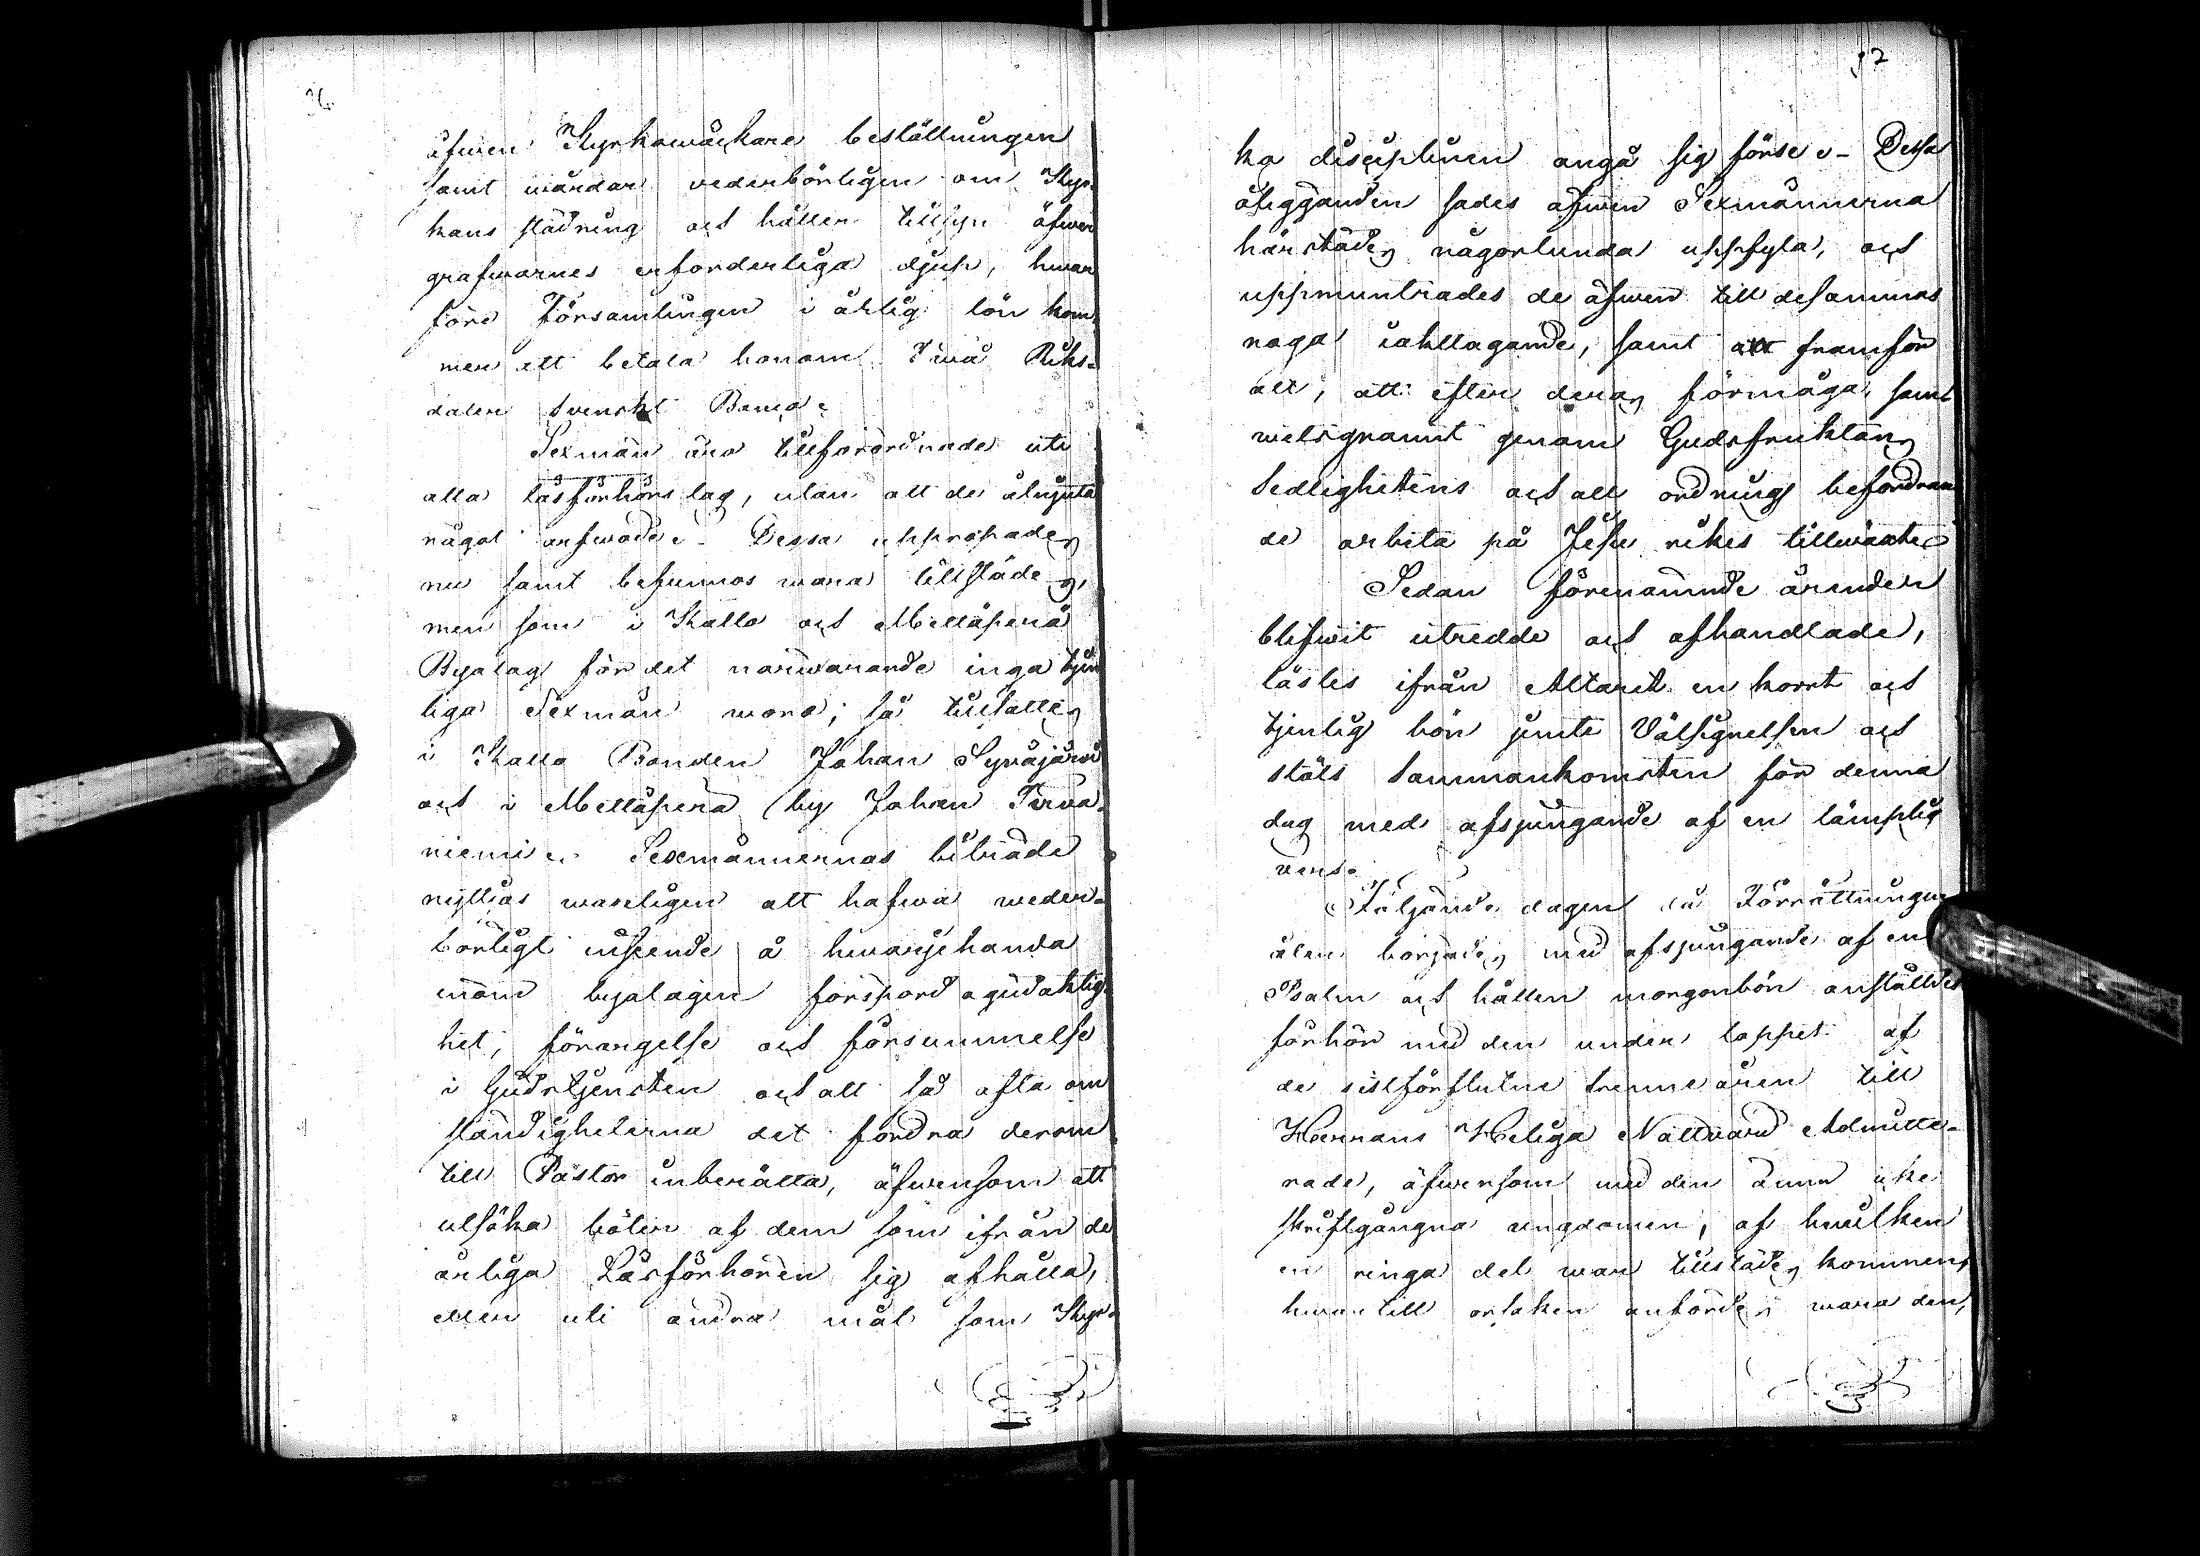 äfwen Kyrkowäckare beställningen
samt wårdar vederbörligen om Kyr-
kans städning och håller tillsyn öfwer
grafwarnes erforderliga djup, hwar
före Församlingen i årlig lön kom-
mer att betala honom Twå Riks-
daler Svenskt Banco.
Sexmän äro tillförordnade uti
alla läsförhörslag, utan att de åtnjuta
något arfwode. Dessa uppropades
nu samt befunnos wara tillstädes,
men som i Kallo och Mellåperä
Byalag för det närwarande inga tjen
liga Sexmän woro; så tillsattes
i Kallo Bonden Johan Syväjärvi
och i Mellåperä by Johan Tirva-
niemi. Sexmännernas biträde
nyttjas wanligen att hafwa weder-
börligt inseende å hwarjehanda
inom byalagen förspord ogudaktig-
het, förargelse och försummelse
i Gudstjensten och all så ofta om
ständigheterna det fordra derom
till Pastor inberätta, äfwensom att
utsöka böter af dem som ifrån de
årliga Läsförhören sig afhålla,
eller uti andra mål som Kyr-
97
ka disciplinen angå sig förse. Dessa
åligganden sades äfwen Sexmännerna
härstädes någorlunda uppfyla, och
uppmuntrades de äfwen till desammas
noga iakttagande, samt att framför
alt, att efter deras förmåga, samt
welsignamt genom Gudsfruktans
Sedlighetens och all ordnings befordran
de arbeta på Jesu rikes tillwäxt.
Sedan förenämnde ärenden
blifwit utredde och afhandlade,
lästes ifrån Altaret en kort och
tjenlig bön jemte Välsignelsen och
slöts Sammankomsten för denna
dag med afsjungande af en lämplig
vers.
Följande dagen då Förrättningen
åter börjades med afsjungande af en
Psalm och hållen morgonbön anställdes
förhör med den under loppet af
de sistförflutne trenne åren till
Herrans Heliga Nattvard Admitte-
rade, äfwensom med den ännu icke
skriftgångna ungdomen, af hwilken
en ringa del war tillstädes kommen,
hwartill orsaken anfördes wara den,